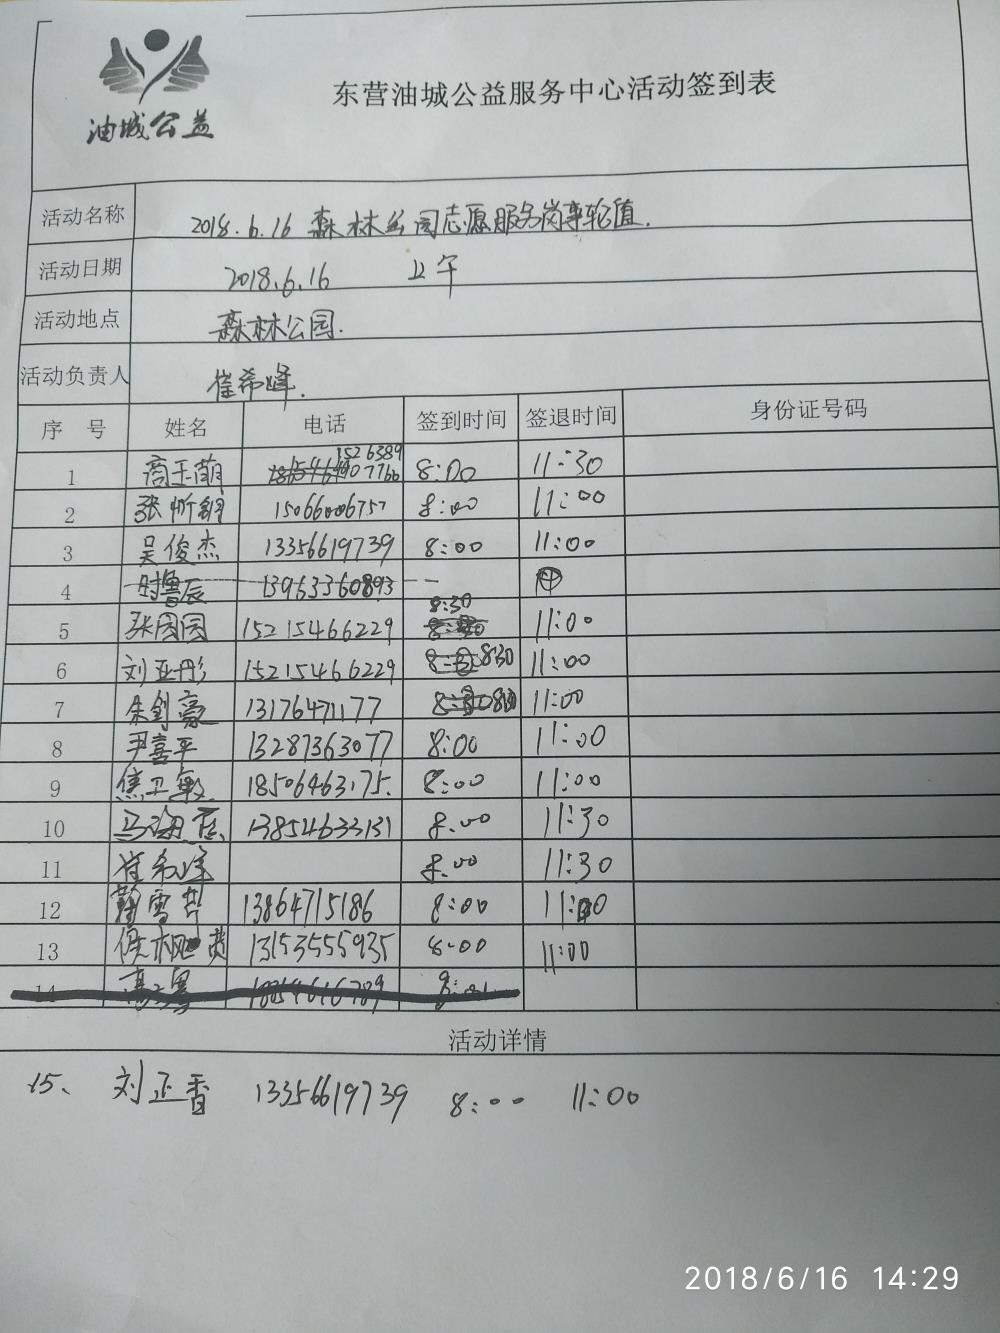 油城公益
东营油城公益服务中心活动签到表
活动名称 2018.6.16 森林公园志愿服务岗亭轮值.
活动日期 2018.6.16 上午
活动地点 森林公园.
活动负责人 崔希峰.
序 号 姓名 电话 签到时间 签退时间 身份证号码
1 商玉萌 1526389 07766 8:00 11:30
2 张忻钥 15066006757 8:00 11:00
3 吴俊杰 13356619739 8:00 11:00
4 时鲁辰 13963360893
5 张园园 15215466229 8:30 11:00
6 刘亚彤 15215466229 8:30 11:00
7 朱钊豪 13176471177 11:00
8 尹喜平 13287363077 8:00 11:00
9 焦卫敏 18506463175. 8:00 11:00
10 马海 13854633131 8:00 11:30
11 崔希峰 8:00 11:30
12 雪 13864715186 8:00 11:00
13 13153555935 8:00 11:00
14
活动详情
15、 刘正香 13356619739 8:00 11:00
2018/6/16 14:29